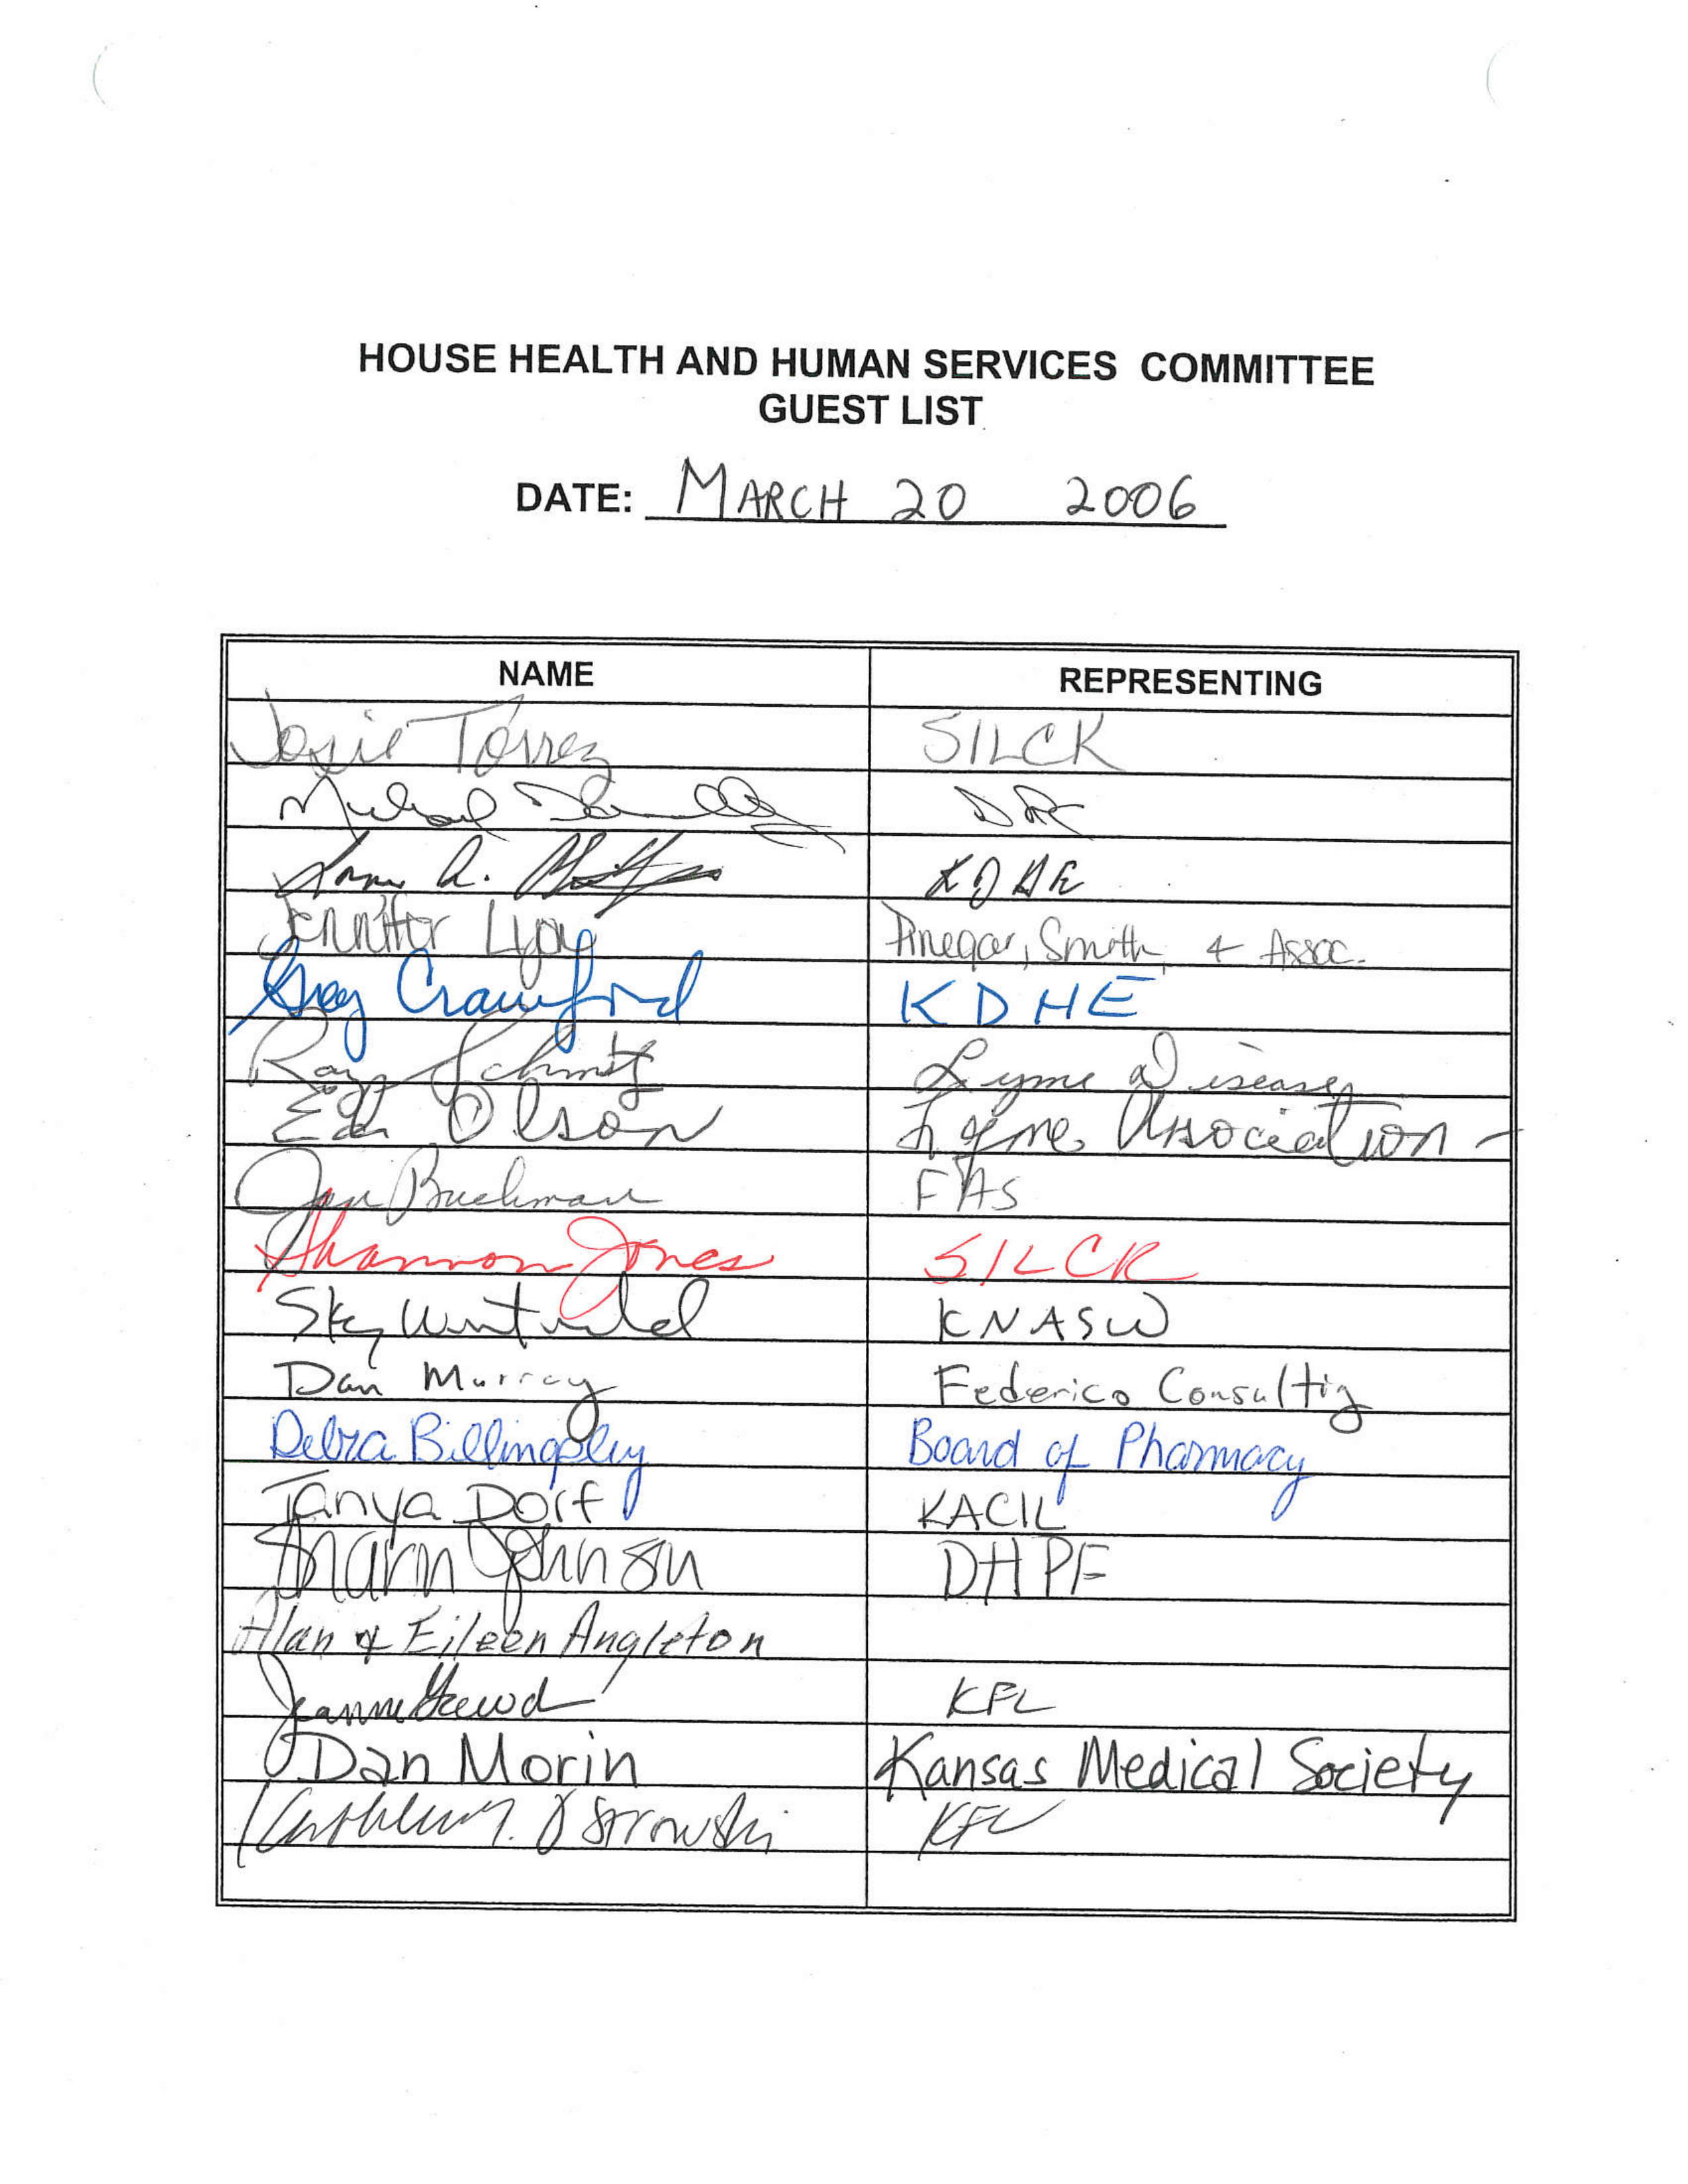 HOUSE HEALTH AND HUMAN SERVICES COMMITTEE
GUEST LIST
DATE: MARCH 20 2006
NAME REPRESENTING
Josie Torrez SILCK
Michael Donnelly DRC
A. KDHE
Jennifer Pinegar, Smith & Assoc.
Greg Crawford KDHE
Ray Schmitz Lyme Disease
Ed Olson Lyme Association
Buchman
Shannon Jones SILCK
Sky Westerlund KNASW
Dan Murray Federico Consultig
Debra Billingsley Board of Pharmacy
Tanya Dorf KACIL
Johnson DHPF
Alan & Eileen Angleton
Jeanne Gawd KFL
Dan Morin Kansas Medical Society
Ostrowski KFL